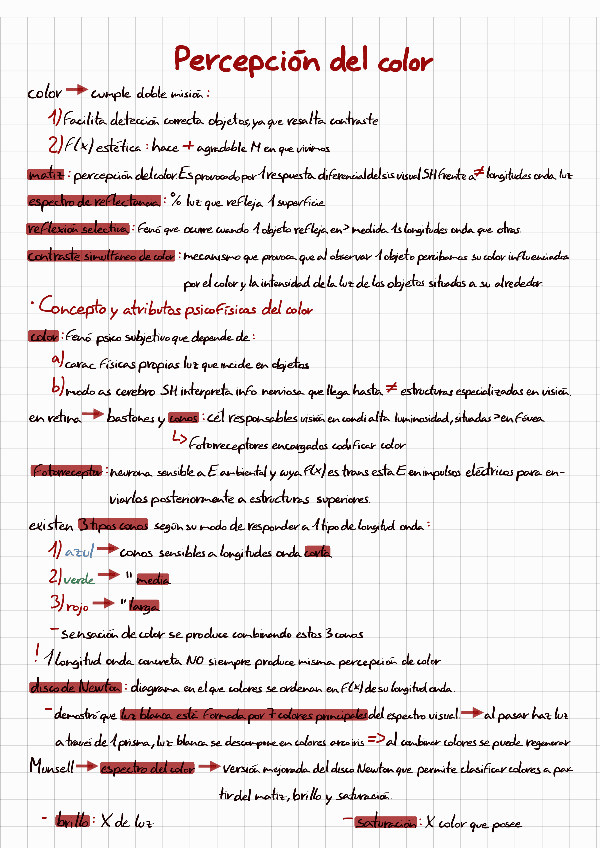 Percepción del color
color → cumple doble misión:
1) Facilita detección correcta objetos, ya que resalta contraste
2) f(x) estética: hace + agradable M en que vivimos
matiz: percepción del color Es provocado por 1 respuesta diferencial del sis visual SH frente a ≠ longitudes onda luz
espectro de reflectancia: % luz que refleja 1 superficie
reflexión selectiva: Fenó que ocurre cuando 1 objeto refleja en > medida 1s longitudes onda que otras.
contraste simultáneo de color: mecanismo que provoca que al observar 1 objeto percibamos su color influenciados
por el color y la intensidad de la luz de los objetos situados a su alrededor
· Concepto y atributos psicofísicos del color
color: fenó psico subjetivo que depende de:
a) carac físicas propias luz que incide en objetos
b) modo as cerebro SH interpreta info nerviosa que llega hasta ≠ estructuras especializadas en visión.
en retina → bastones y conos: cel responsables visión en condi alta luminosidad, situadas > en fóvea
↳ fotorreceptores encargados codificar color
Fotorreceptor: neurona sensible a E ambiental y cuya f(x) es trans esta E en impulsos eléctricos para en-
viarlos posteriormente a estructuras superiores.
existen 3 tipos conos según su modo de responder a 1 tipo de longitud onda:
1) azul → conos sensibles a longitudes onda corta
2) verde → " media
3) rojo → " larga
- sensación de color se produce combinando estos 3 conos
! 1 longitud onda concreta NO siempre produce misma percepción de color
disco de Newton: diagrama en el que colores se ordenan en f(x) de su longitud onda.
- demostró que luz blanca está formada por 7 colores principales del espectro visual → al pasar haz luz
a través de 1 prisma, luz blanca se descompone en colores arcoiris => al combinar colores se puede regenerar
Munsell → espectro del color → versión mejorada del disco Newton que permite clasificar colores a par-
tir del matiz, brillo y saturación.
- brillo: X de luz
- saturación: X color que posee